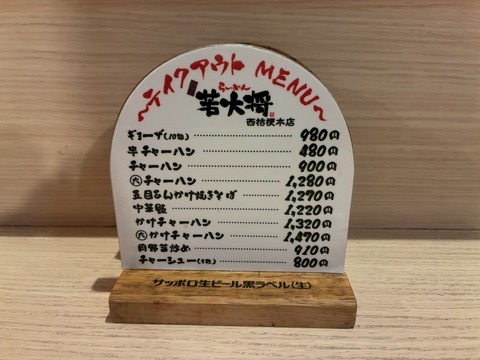 ~テイクアウト MENU~
らーめん
若大将
西桔梗本店
ギョーザ(10ヶ) 980円
半チャーハン 480円
チャーハン 900円
大チャーハン 1,280円
五目あんかけ焼きそば 1,270円
中華飯 1,220円
かけチャーハン 1,320円
大かけチャーハン 1,470円
肉野菜炒め 910円
チャーシュー(5枚) 800円
サッポロ生ビール黒ラベル〈生〉